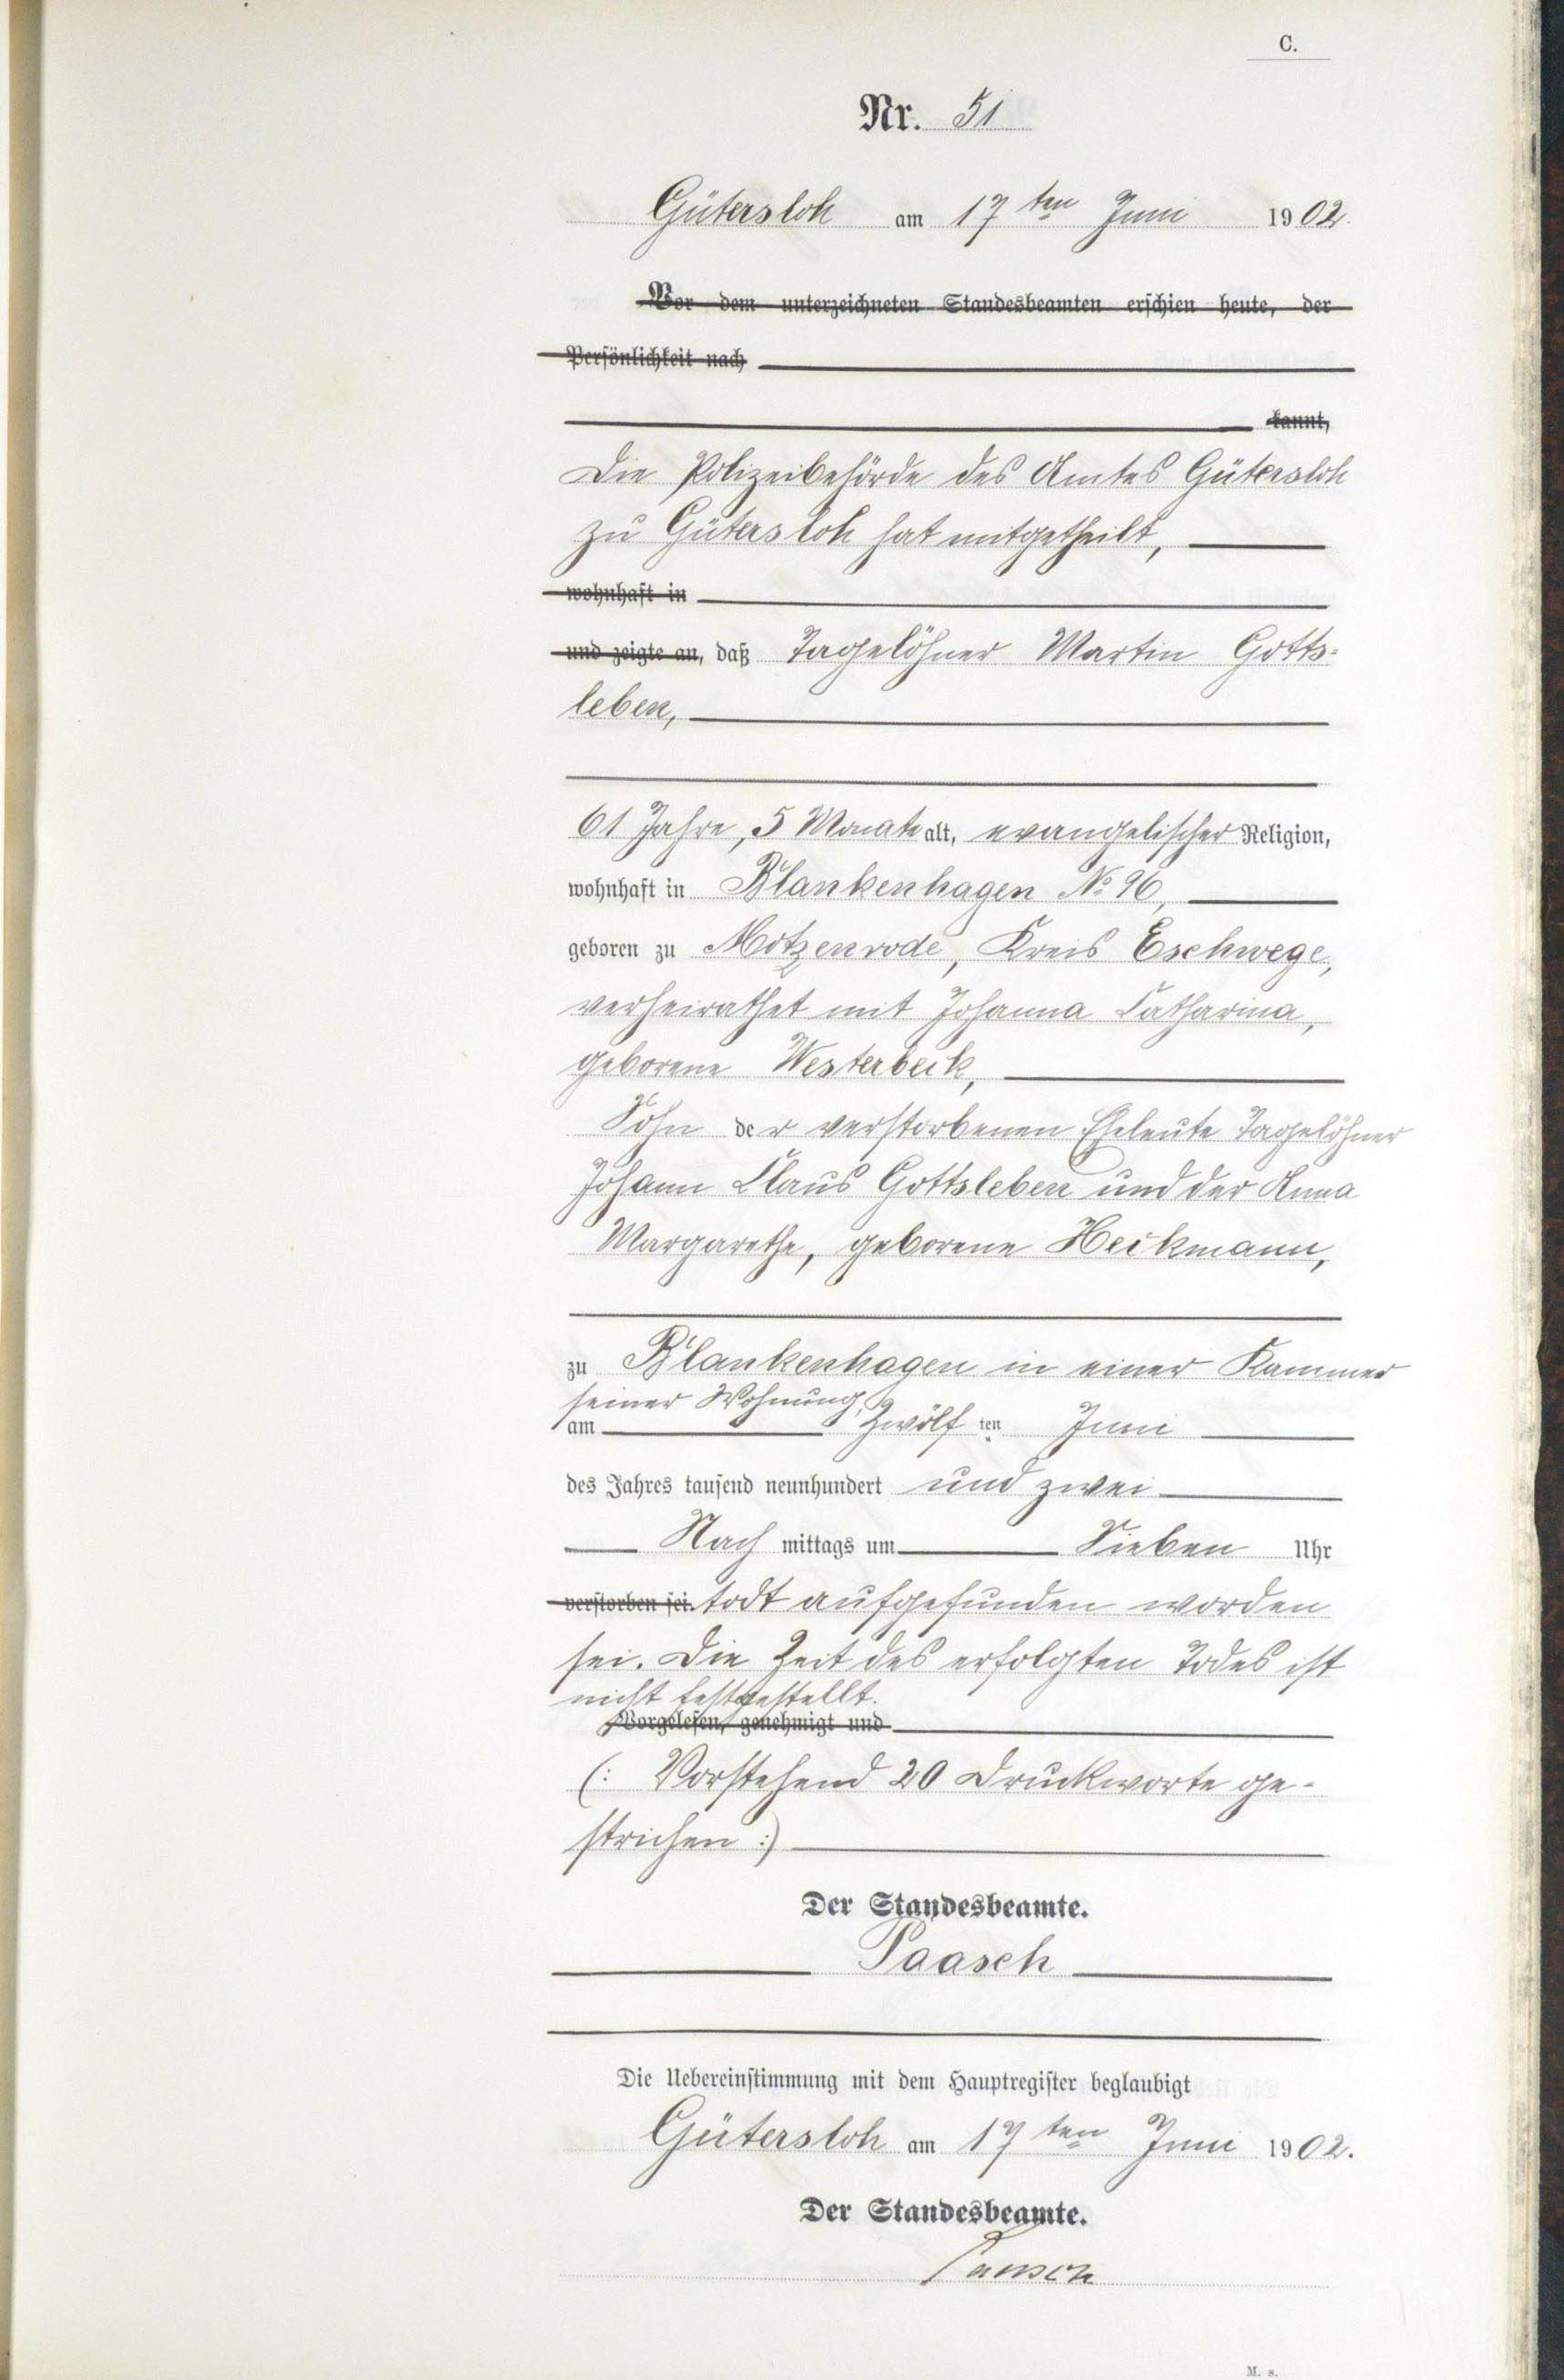 C.
Nr. 51
Gütersloh am 17ten Juni 1902.
Vor dem unterzeichneten Standesbeamten erschien heute, der
Persönlichkeit nach
kannt,
Die Polizeibehörde des Amtes Gütersloh
zu Gütersloh hat mitgetheilt,
wohnhaft in
und zeigte an, daß Tagelöhner Martin Gotts-
leben,
61 Jahre, 5 Monate alt, evangelischer Religion,
wohnhaft in Blankenhagen No 96,
geboren zu Motzenrode, Kreis Eschwege,
verheirathet mit Johanna Catharina,
geborene Westerbeck,
Sohn der verstorbenen Eheleute Tagelöhner
Johann Claus Gottsleben und der Anna
Margarethe, geborene Heckmann,
zu Blankenhagen in einer Kammer
seiner Wohnung,
am Zwölf ten Juni
des Jahres tausend neunhundert und zwei
Nach mittags um Sieben Uhr
verstorben sei. todt aufgefunden worden
sei. Die Zeit des erfolgten Todes ist
nicht festgestellt.
Vorgelesen, genehmigt und
(: Vorstehend 20 Druckworte ge-
strichen :)
Der Standesbeamte.
Paasch
Die Uebereinstimmung mit dem Hauptregister beglaubigt
Gütersloh am 17ten Juni 1902.
Der Standesbeamte.
Paasch
M. s.